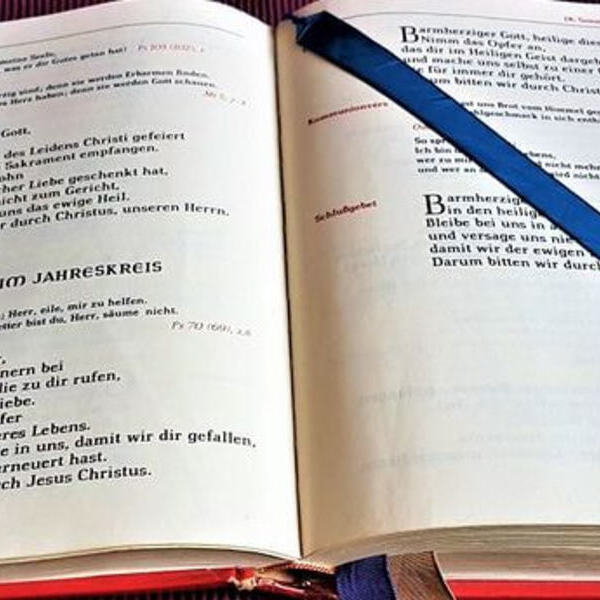 meine Seele,
was er dir Gutes getan hat! Ps 103 (102),
rzig sind; denn sie werden Erbarmen finden.
s Herz haben; denn sie werden Gott schauen.
Mt 5, 7-8
Gott,
des Leidens Christi gefeiert
Sakrament empfangen.
ohn
cher Liebe geschenkt hat,
nicht zum Gericht,
uns das ewige Heil.
r durch Christus, unseren Herrn.
IM JAHRESKREIS
; Herr, eile, mir zu helfen.
etter bist du, Herr, säume nicht.
Ps 70 (69), 2.6
nern bei
die zu dir rufen,
iebe.
fer
eres Lebens.
e in uns, damit wir dir gefallen,
erneuert hast.
ch Jesus Christus.
18. Sonn
Barmherziger Gott, heilige dies
Nimm das Opfer an,
das dir im Heiligen Geist dargeb
und mache uns selbst zu einer
r für immer dir gehört.
um bitten wir durch Christ
Kommunionvers
st uns Brot vom Himmel ge
hlgeschmack in sich enth
So spr
Ich bin ebens,
wer zu mi nicht mehr
und wer an wird nicht
Schlußgebet
Barmherzig
in den heilig
Bleibe bei uns in a
und versage uns nie
damit wir der ewigen
Darum bitten wir durch